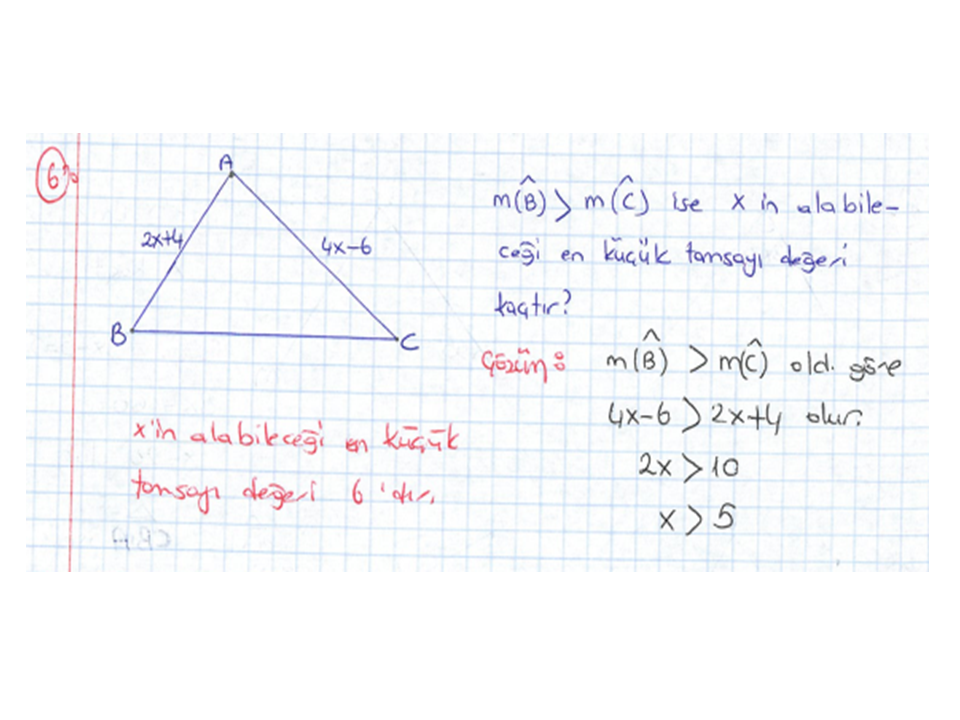 6
A
2x+4
4x-6
B
C
m(B̂) > m(Ĉ) ise x in alabile-
ceği en küçük tamsayı değeri
kaçtır?
Çözüm:
m(B̂) > m(Ĉ) old. göre
4x-6 > 2x+4 olur.
2x > 10
x > 5
x'in alabileceği en küçük
tamsayı değeri 6'dır.